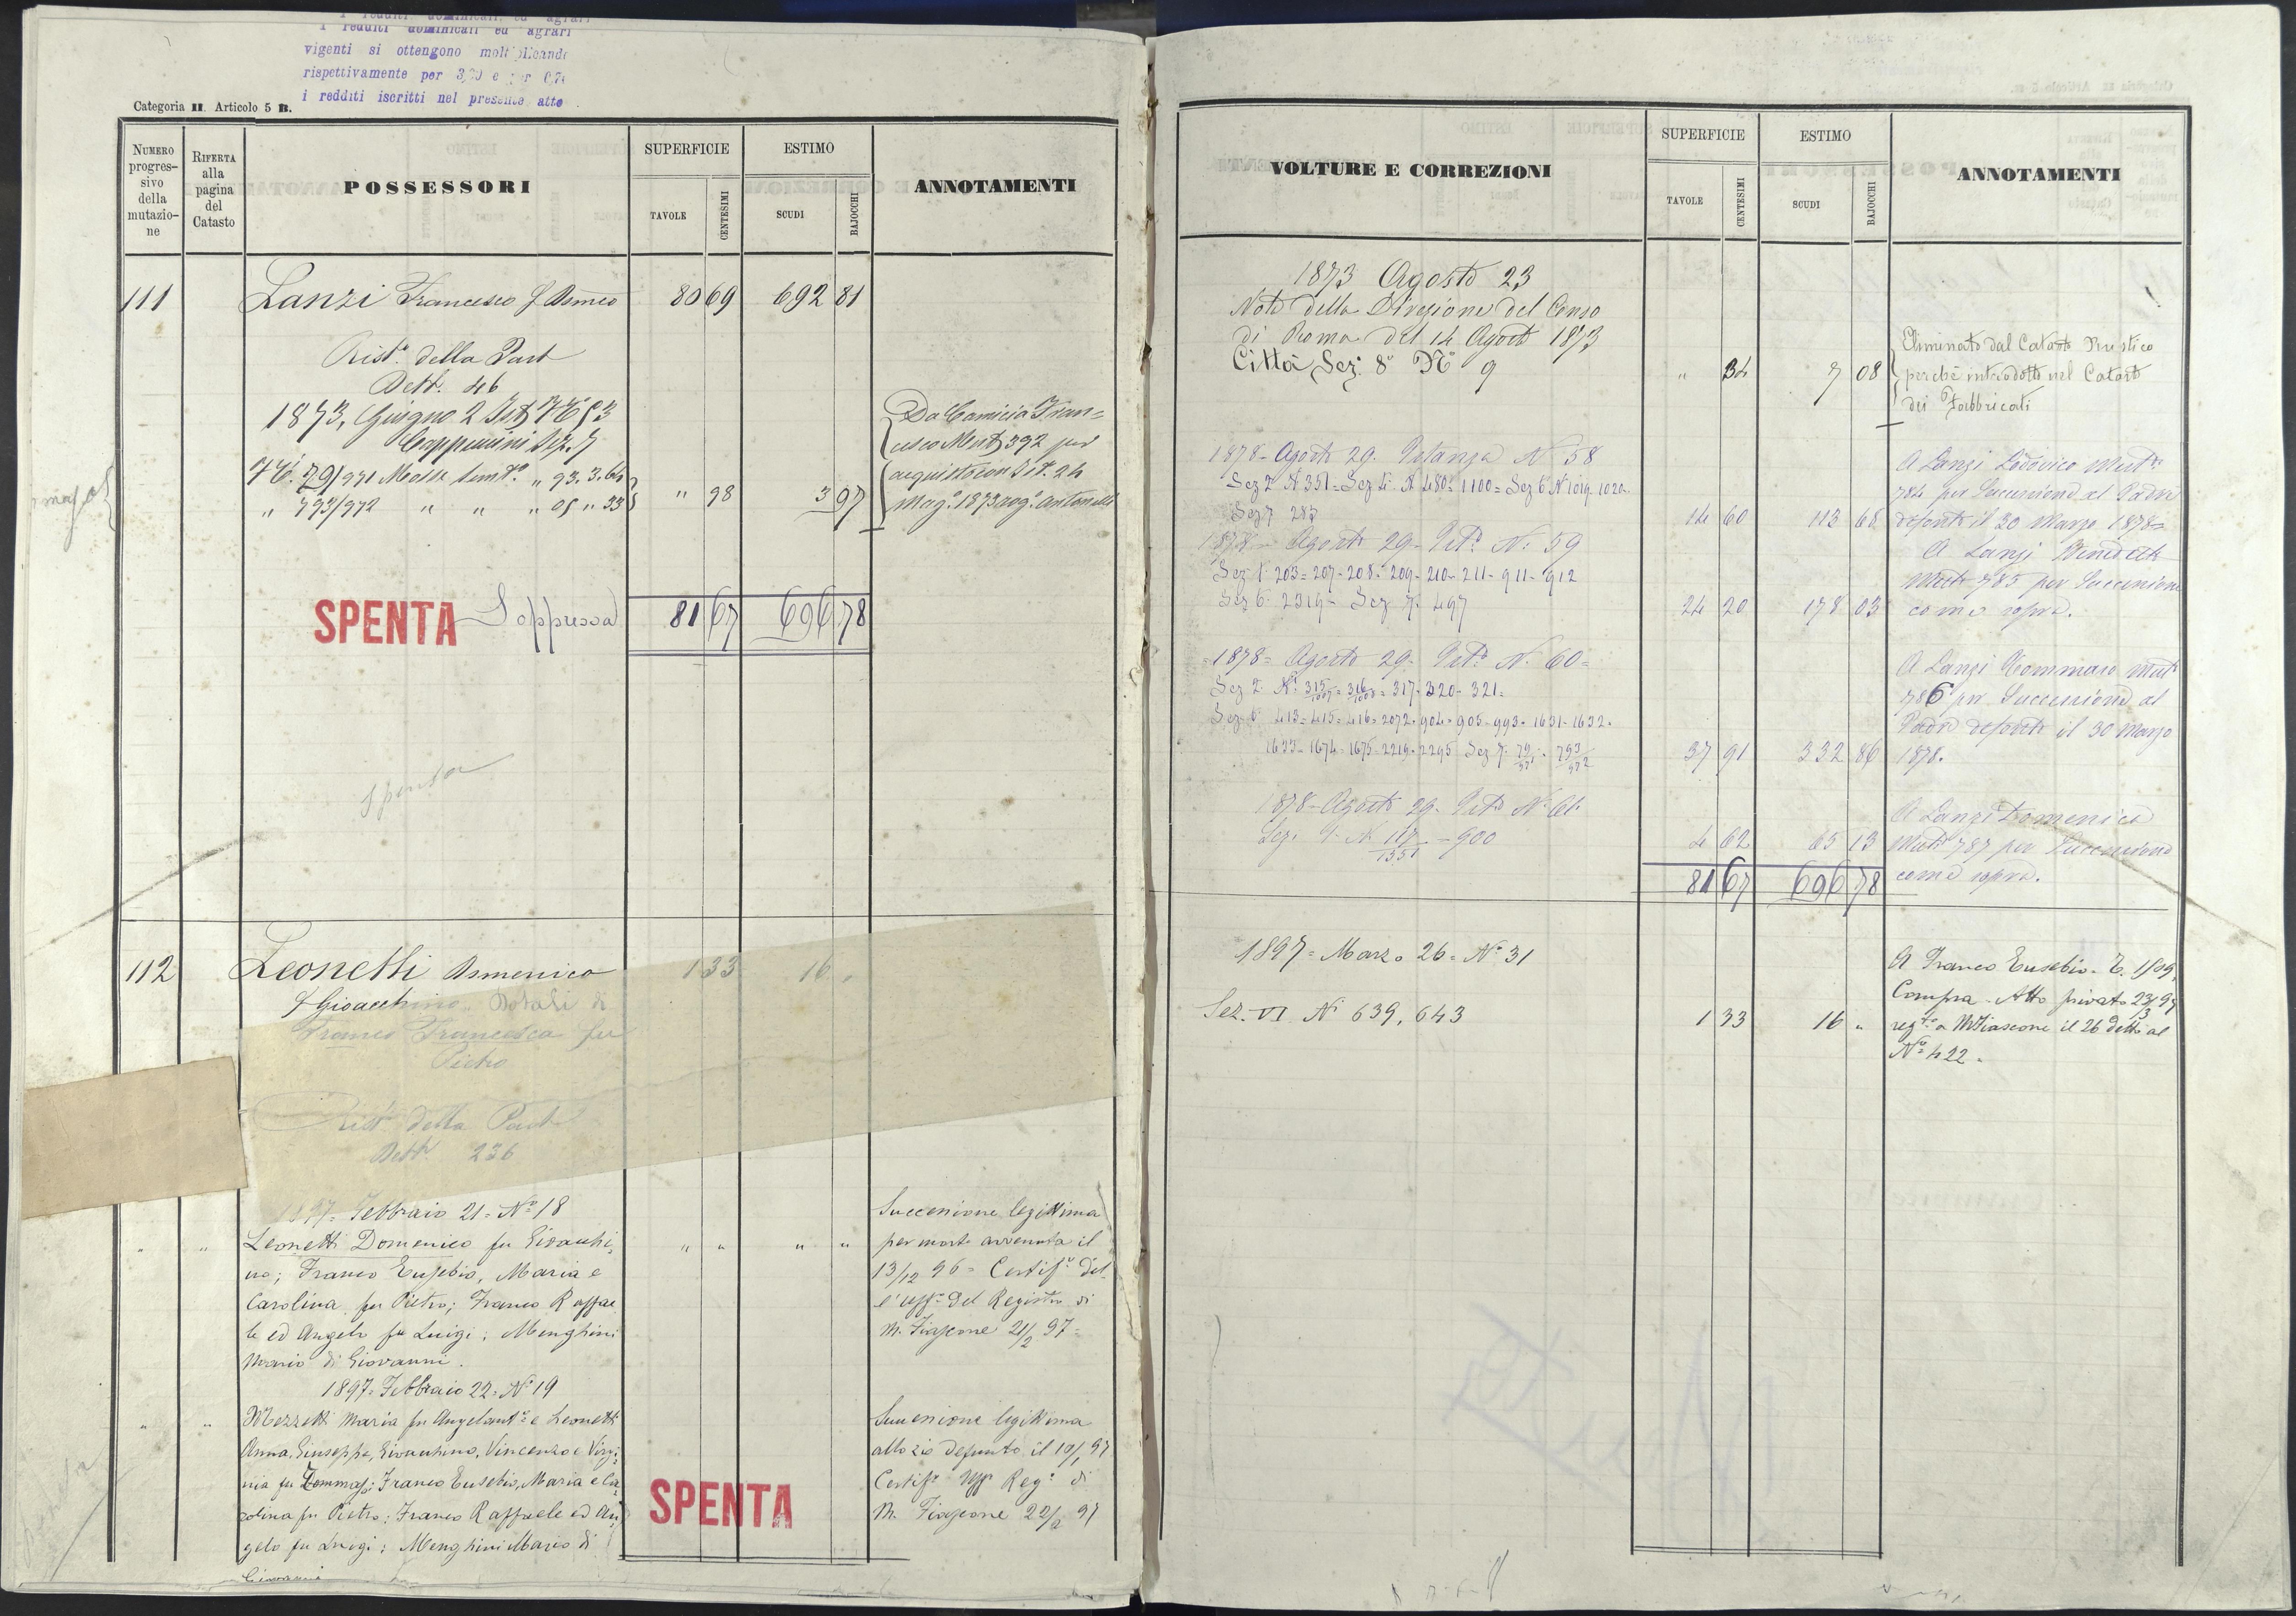 I redditi dominicali ed agrari
vigenti si ottengono moltiplicando
rispettivamente per
i redditi iscritti nel presente atto
Categoria II. Articolo 5 B.
NUMERO progres-sivo della mutazio-ne
RIFERTA alla pagina del Catasto
POSSESSORI
SUPERFICIE
TAVOLE
CENTESIMI
ESTIMO
SCUDI
BAJOCCHI
ANNOTAMENTI
111 Lanzi Francesco 80 69 692 81
Rist. della Part
Dett. 46
1873, Giugno 2
Cappuccini Sez. 7
79/971
793/972 " " " 05 " 33
" 98 3 97
Da Camicia Fran=
cesco 392 per
acquisto con 24
Mag. 1873 rog. Antonelli
SPENTA Soppressa 81 67 696 78
spenta
112 Leonetti Domenico 1 33 16 "
f Gioacchino Dotali di
Franco Francesca fu
Pietro
Rist. della Part
Dett. 236
1897= Febbraio 21= No 18
" " Leonetti Domenico fu Gioacchi= " " " "
no; Franco Eusebio, Maria e
Carolina fu Pietro; Franco Raffae
le ed Angelo fu Luigi; Menghini
Mario di Giovanni.
Successione legittima
per morte avvenuta il
13/12 96= Certif. del=
l'Uff. del Registro di
M. Fiascone 21/2 97=
1897= Febbraio 22= No 19
" " Mezzetti Maria fu Angelant. e Leonetti
Anna, Giuseppe, Gioacchino, Vincenzo e Virgi=
nia fu Tommaso; Franco Eusebio, Maria e Ca=
rolina fu Pietro; Franco Raffaele ed An=
gelo fu Luigi; Menghini Mario di
Giovanni
Successione legittima
allo zio defunto il 10/1 97
Certif. Uff. Reg. di
M. Fiascone 22/2 97
SPENTA
VOLTURE E CORREZIONI
SUPERFICIE
TAVOLE
CENTESIMI
ESTIMO
SCUDI
BAJOCCHI
ANNOTAMENTI
1873 Agosto 23
Nota della Direzione del Censo
di Roma del 14 Agosto 1873
Città Sez. 8 No 9 " 34 7 08
Eliminato dal Catasto Rustico
perchè introdotto nel Catasto
dei Fabbricati
1878= Agosto 29. Istanza No 58
Sez 2 N 351= Sez 4: N 480= 1100= Sez 6 N 1019. 1020.
Sez 7 287 14 60 113 68
A Lanzi Lodovico Mut.
784 per Successione al Padre
defunto il 30 Marzo 1878=
1878= Agosto 29= Ist. N: 59
Sez 1: 203= 207= 208= 209= 210= 211= 911= 912
Sez 6: 2319= Sez 7: 497 24 20 178 03
A Lanzi Benedetto
Mut 785 per Successione
come sopra.
=1878= Agosto 29= Ist. N. 60=
Sez 2: N. 315/1007= 316/1008= 317= 320= 321=
Sez 6: 413= 415= 416= 2072= 904= 905= 993= 1631= 1632=
1633= 1674= 1675= 2219= 2295 Sez 7: 79/971= 793/972 37 91 332 86
A Lanzi Tommaso Mut
786 per Successione al
Padre defunto il 30 Marzo
1878.
1878= Agosto 29= Ist. N. 61
Sez. 7= N 117/1331 = 900 4 62 65 13
A Lanzi Domenico
Mut 787 per Successione
come sopra.
81 67 696 78
1897= Marzo 26= No 31
Sez. VI No 639, 643 1 33 16 "
A Franco Eusebio=
Compra= Atto privato 23/3 97
reg. a M. Fiascone il 26 detto al
No 422=